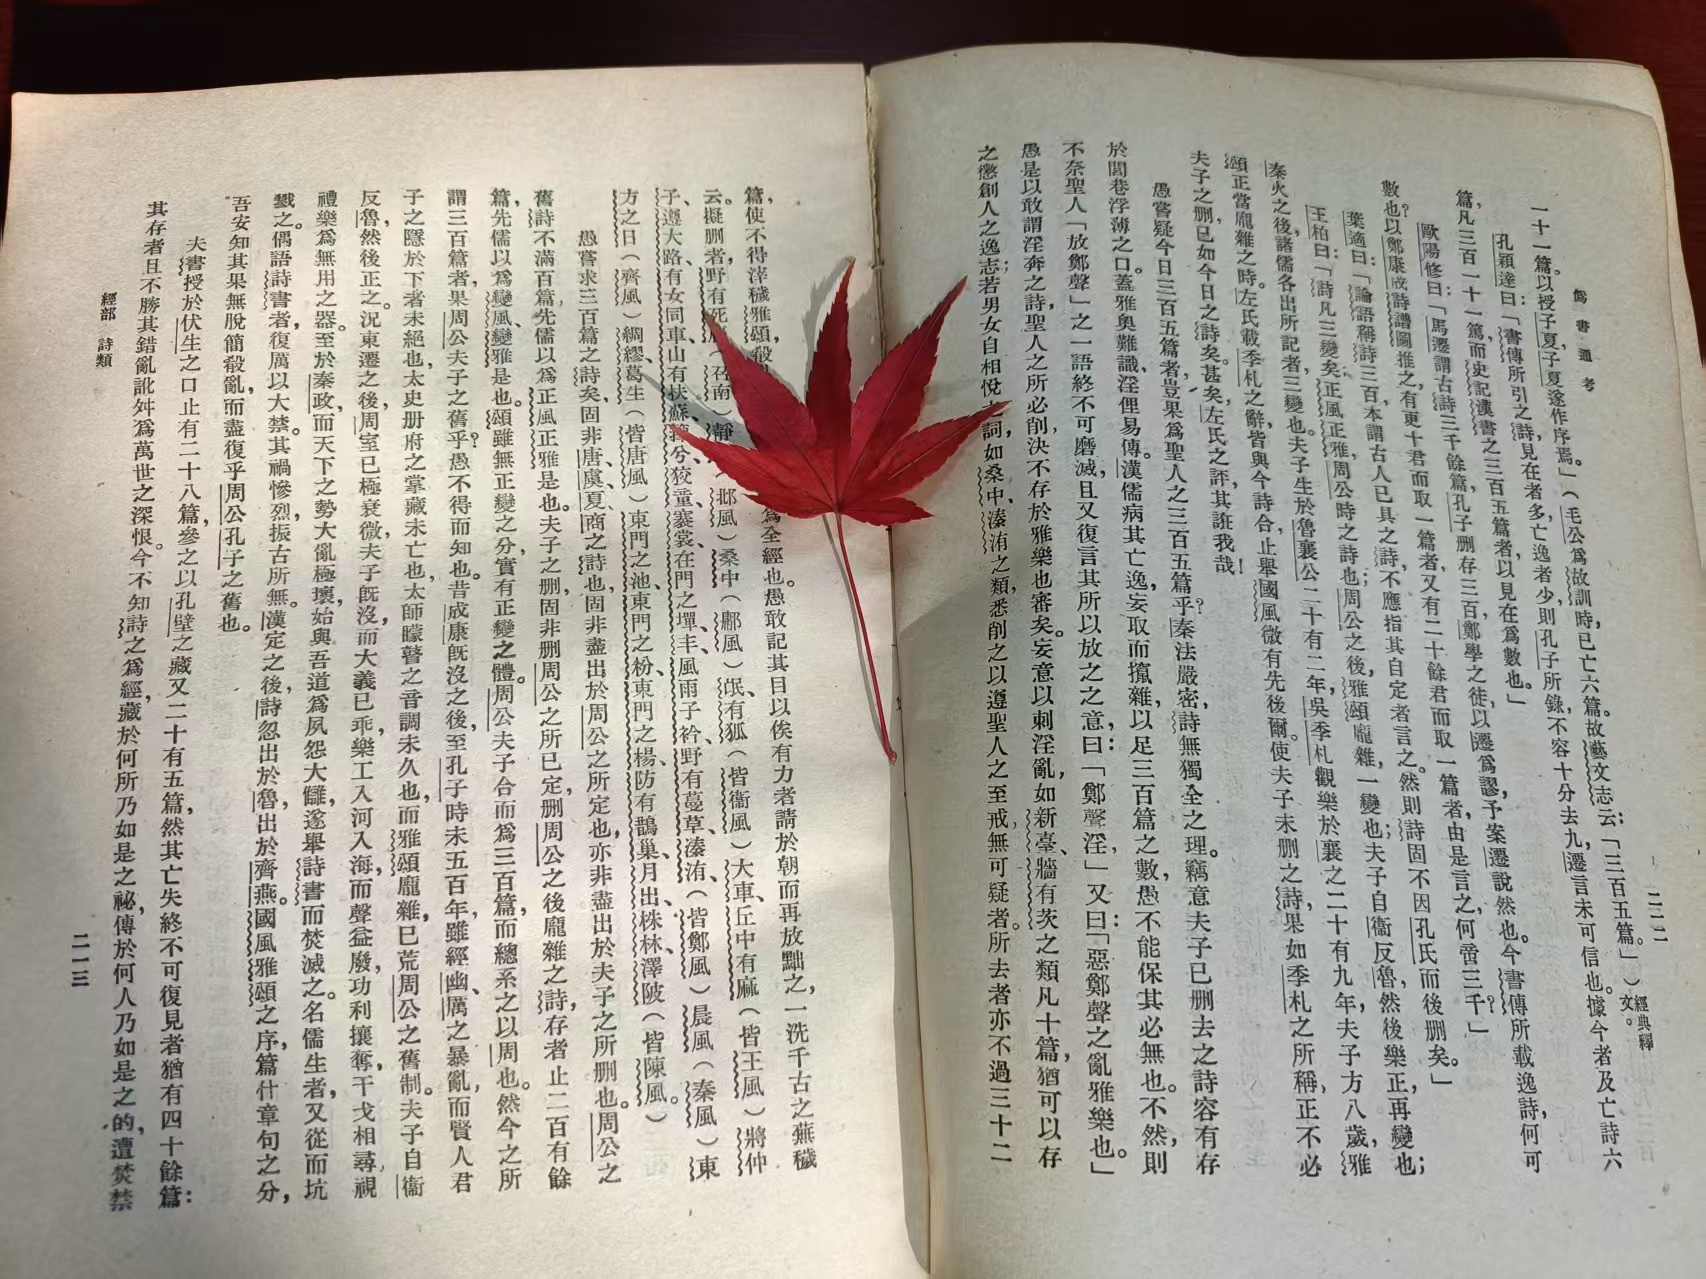 僞書通考
二一二
一十一篇。以授子夏子夏遂作序焉。」（毛公爲故訓時已亡六篇。故藝文志云：「三百五篇。」）經典釋文。
孔穎達曰：「書傳所引之詩見在者多亡逸者少則孔子所錄不容十分去九，遷言未可信也。據今者及亡詩六
篇，凡三百一十一篇，而史記漢書之三百五篇者，以見在爲數也。」
歐陽修曰：「馬遷謂古詩三千餘篇孔子删存三百鄭學之徒，以遷爲謬，予案遷說然也。今書傳所載逸詩，何可
數也？以鄭康成詩譜圖推之，有更十君而取一篇者，又有二十餘君而取一篇者，由是言之，何啻三千？」
葉適曰：「論語稱詩三百，本謂古人已具之詩，不應指其自定者言之。然則詩固不因孔氏而後删矣。」
王柏曰：「詩凡三變矣，正風正雅周公時之詩也；周公之後，雅頌龐雜，一變也；夫子自衞反魯，然後樂正，再變也；
秦火之後，諸儒各出所記者，三變也。夫子生於魯襄公二十有二年，吳季札觀樂於襄之二十有九年，夫子方八歲，雅
頌正當龐雜之時。左氏載季札之辭，皆與今詩合，止舉國風微有先後爾。使夫子未删之詩，果如季札之所稱，正不必
夫子之删，已如今日之詩矣。甚矣，左氏之 其誑我哉！
愚嘗疑今日三百五篇者，豈果爲聖人之三百五篇乎？秦法嚴密，詩無獨全之理。竊意夫子已删去之詩，容有存
於閭巷浮薄之口。蓋雅奧難識，淫俚易傳。漢儒病其亡逸，妄取而攛雜，以足三百篇之數，愚不能保其必無也。不然，則
不奈聖人「放鄭聲」之一語終不可磨滅，且又復言其所以放之之意，曰：「鄭聲淫，」又曰：「惡鄭聲之亂雅樂也。」
愚是以敢謂淫奔之詩，聖人之所必削，決不存於雅樂也審矣。妄意以刺淫亂，如新臺、牆有茨之類凡十篇，猶可以存
之懲創人之逸志；若男女自相悅之詞，如桑中、溱洧之類，悉削之以遵聖人之至戒，無可疑者。所去者亦不過三十二
篇，使不得滓穢雅頌，殽 爲全經也。愚敢記其目以俟有力者請於朝而再放黜之，一洗千古之蕪穢
云。擬删者野有死 （召南）靜 （邶風）桑中（鄘風）氓、有狐（皆衞風）大車、丘中有麻（皆王風）將仲
子、遵大路、有女同車、山有扶蘇、蘀兮、狡童、褰裳、丰、風雨、子衿、野有蔓草、溱洧（皆鄭風）晨風（秦風）東
方之日（齊風）綢繆、葛生（皆唐風）東門之池、東門之枌、東門之楊、防有鵲巢、月出、株林、澤陂（皆陳風。）
愚嘗求三百篇之詩矣，固非唐、虞、夏、商之詩也，固非盡出於周公之所定也，亦非盡出於夫子之所删也。周公之
舊詩不滿百篇，先儒以爲正風正雅是也。夫子之删，固非删周公之所已定，删周公之後龐雜之詩，存者止二百有餘
篇，先儒以爲變風變雅是也。頌雖無正變之分，實有正變之體。周公夫子合而爲三百篇，而總系之以周也。然今之所
謂三百篇者，果周公夫子之舊乎？愚不得而知也。昔成、康旣沒之後，至孔子時未五百年，雖經幽、厲之暴亂，而賢人君
子之隱於下者未絕也，太史册府之掌藏未亡也，太師矇瞽之音調未久也，而雅頌龐雜，已荒周公之舊制。夫子自衞
反魯，然後正之。況東遷之後，周室已極衰微，夫子旣沒，而大義已乖，樂工入河入海，而聲益廢，功利攘奪，干戈相尋，視
禮樂爲無用之器。至於秦政，而天下之勢大亂極壞，始與吾道爲夙怨大讎，遂舉詩書而焚滅之，名儒生者，又從而坑
戮之。偶語詩書者，復厲以大禁。其禍慘烈，振古所無。漢定之後，詩忽出於魯，出於齊燕。國風雅頌之序，篇什章句之分，
吾安知其果無脫簡殽亂，而盡復乎周公孔子之舊也。
夫書授於伏生之口止有二十八篇，參之以孔壁之藏，又二十有五篇，然其亡失終不可復見者猶有四十餘篇：
其存者且不勝其錯亂訛舛爲萬世之深恨。今不知詩之爲經，藏於何所，乃如是之祕，傳於何人，乃如是之的，遭焚禁
經部 詩類
二一三